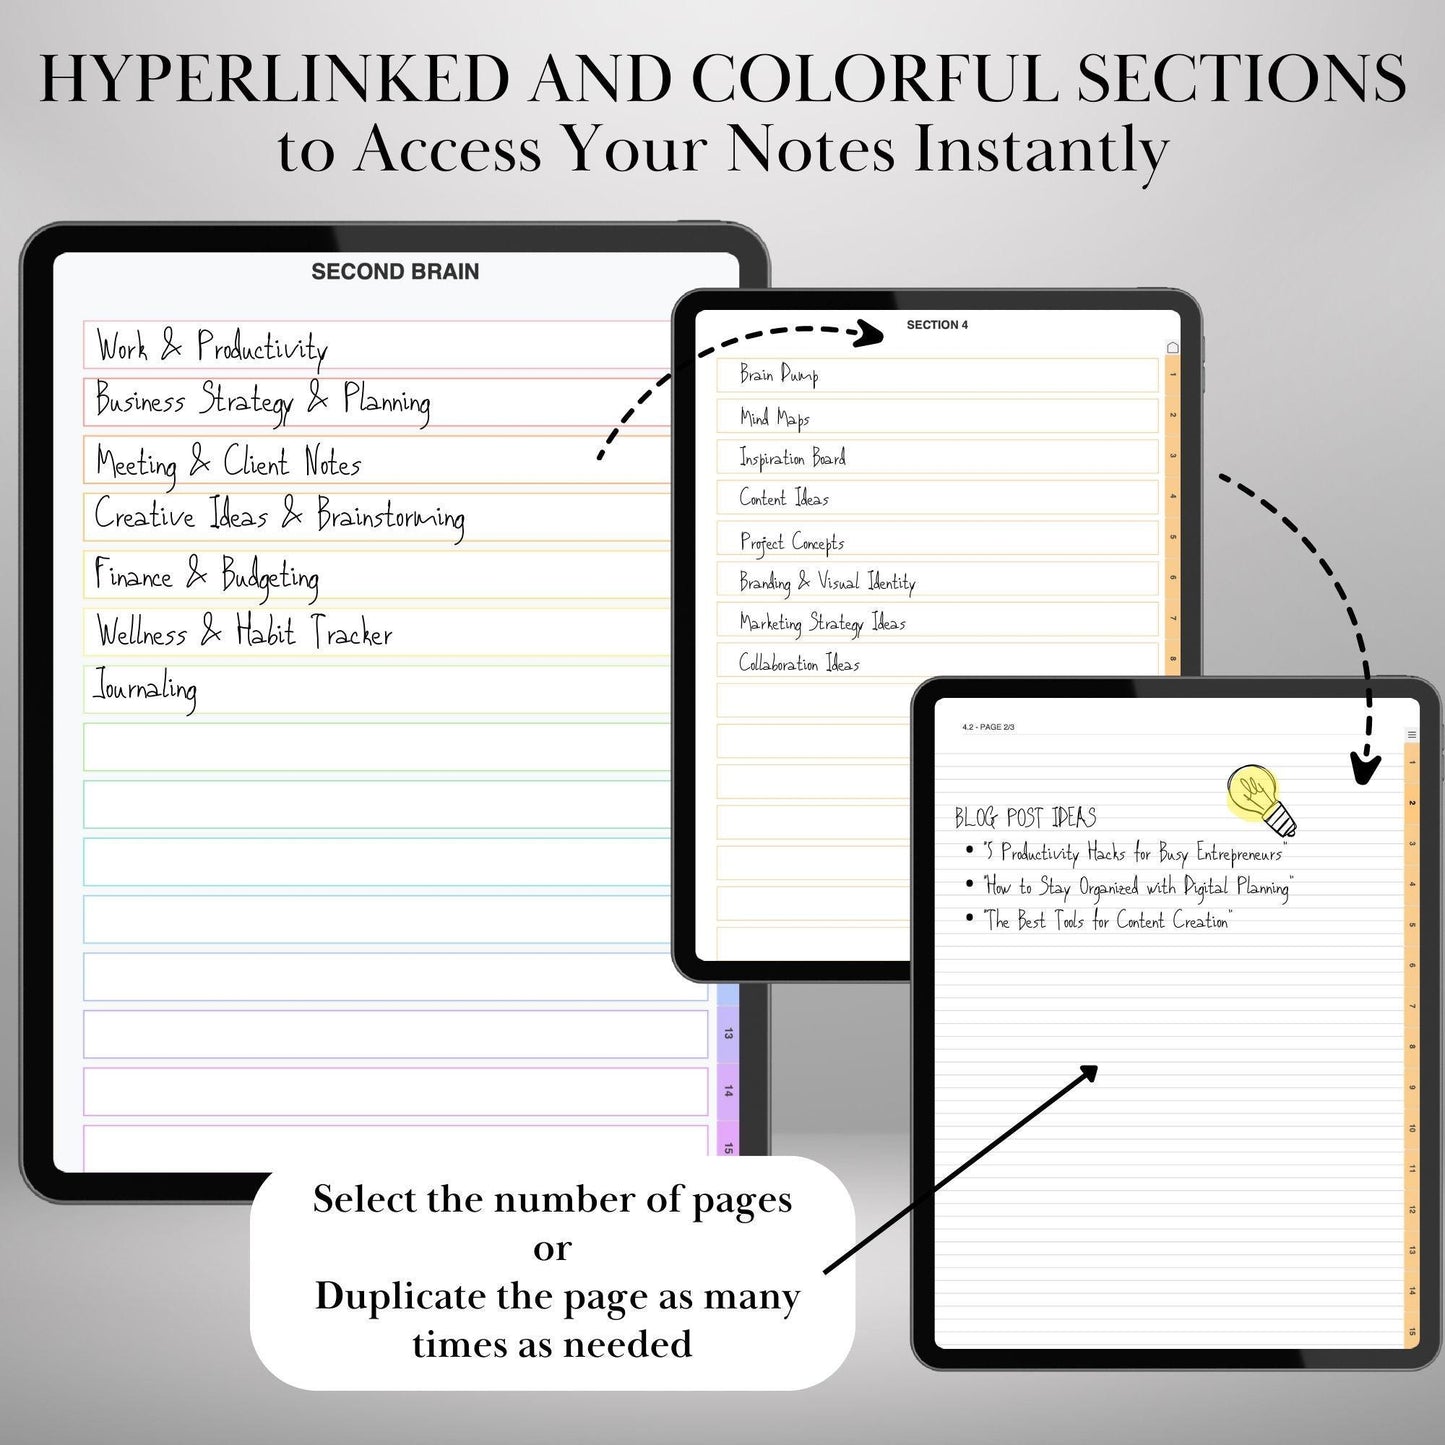 HYPERLINKED AND COLORFUL SECTIONS
to Access Your Notes Instantly
SECOND BRAIN
Work & Productivity
Business Strategy & Planning
Meeting & Client Notes
Creative Ideas & Brainstorming
Finance & Budgeting
Wellness & Habit Tracker
Journaling
13
14
15
SECTION 4
Brain Dump
Mind Maps
Inspiration Board
Content Ideas
Project Concepts
Branding & Visual Identity
Marketing Strategy Ideas
Collaboration Ideas
1
2
3
4
5
6
7
8
4.2 - PAGE 2/3
BLOG POST IDEAS
• "5 Productivity Hacks for Busy Entrepreneurs"
• "How to Stay Organized with Digital Planning"
• "The Best Tools for Content Creation"
1
2
3
4
5
6
7
8
9
10
11
12
13
14
15
Select the number of pages
or
Duplicate the page as many
times as needed